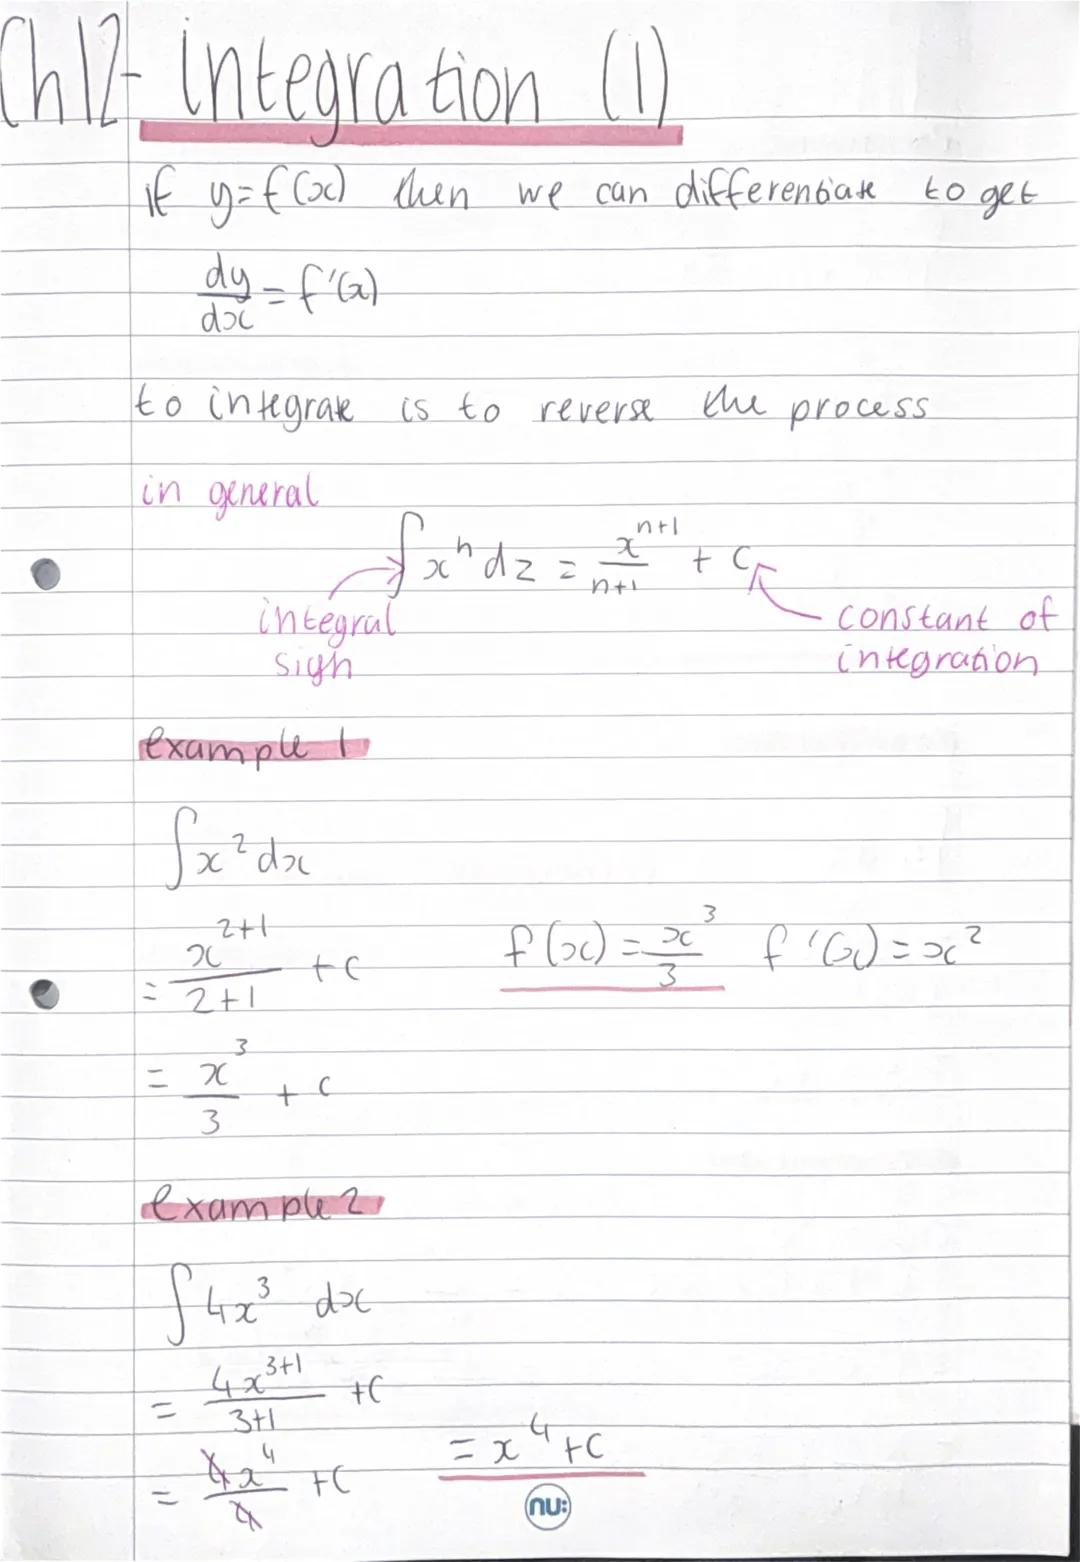 Ch12 - integration (1)
if y=f(x) then we can differentiate to get
dy/dx = f'(x)
to integrate is to reverse the process
in general
∫xⁿ dz = xⁿ⁺¹/n+1 + C
integral sign
constant of integration
example 1
∫x² dx
= x²⁺¹/2+1 + C
f(x) = x³/3 f'(x) = x²
= x³/3 + C
example 2
∫4x³ dx
= 4x³⁺¹/3+1 + C
= 4x⁴/4 + C
= x⁴ + C
nu: